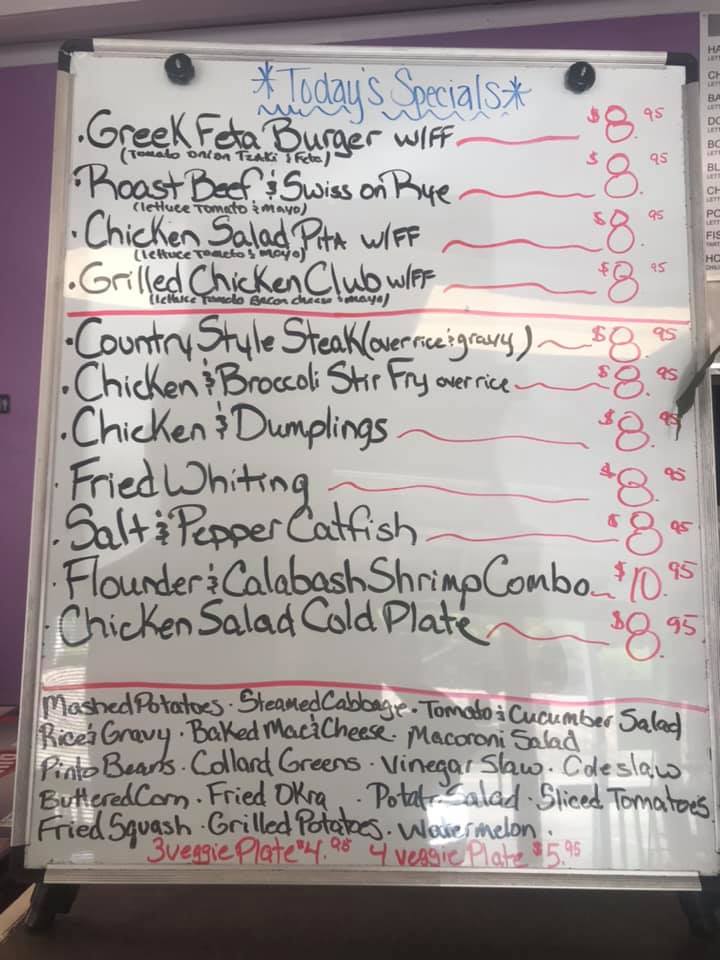 *Today's Specials*
·Greek Feta Burger w/FF $8.95
(Tomato Onion Tzaki & Feta)
·Roast Beef & Swiss on Rye $8.95
(lettuce Tomato & mayo)
·Chicken Salad Pita w/FF $8.95
(lettuce Tomato & mayo)
·Grilled Chicken Club w/FF $8.95
(lettuce Tomato Bacon cheese & mayo)
·Country Style Steak (over rice & gravy) $8.95
·Chicken & Broccoli Stir Fry over rice $8.95
·Chicken & Dumplings $8.95
·Fried Whiting $8.95
·Salt & Pepper Catfish $8.95
·Flounder & Calabash Shrimp Combo $10.95
·Chicken Salad Cold Plate $8.95
Mashed Potatoes · Steamed Cabbage · Tomato & Cucumber Salad
Rice & Gravy · Baked Mac & Cheese · Macoroni Salad
Pinto Beans · Collard Greens · Vinegar Slaw · Coleslaw
Buttered Corn · Fried Okra · Potato Salad · Sliced Tomatoes
Fried Squash · Grilled Potatoes · Watermelon ·
3 veggie Plate $4.95 4 veggie Plate $5.95